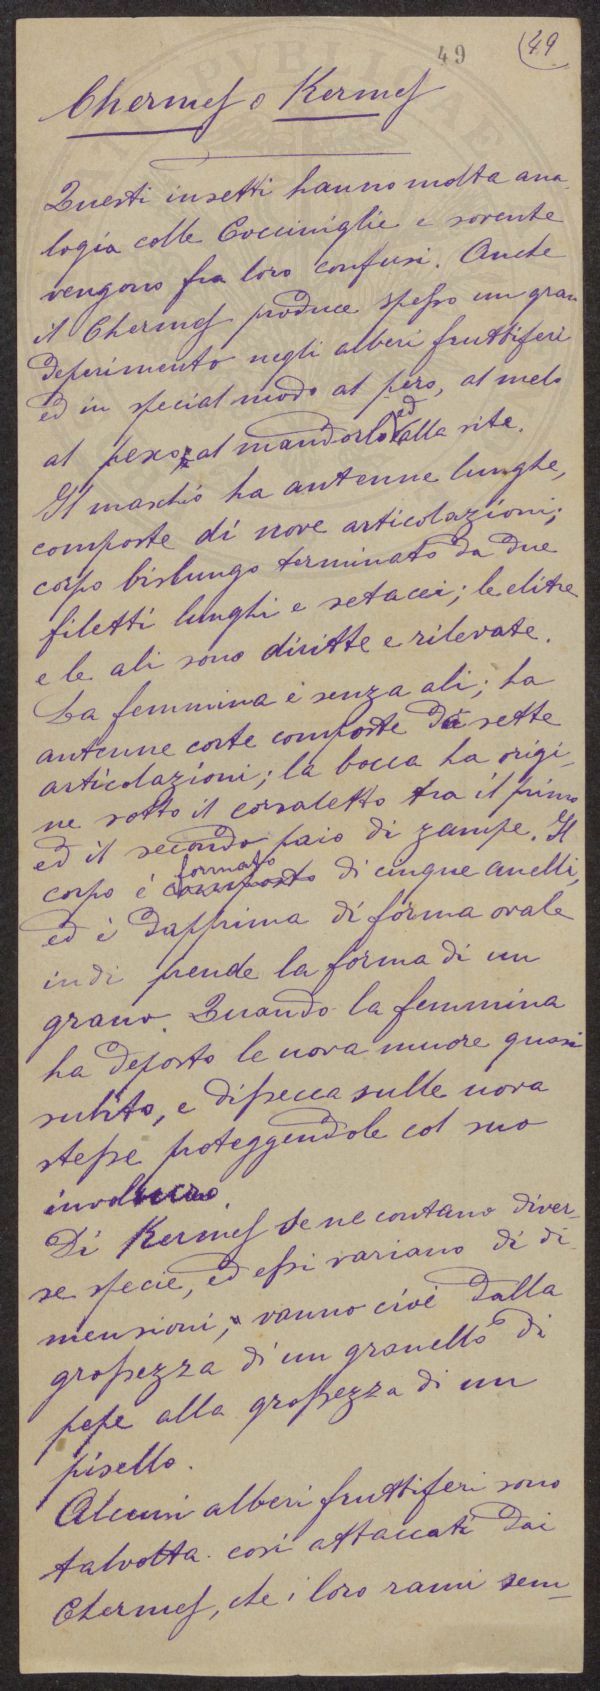 49
49
Chermes o Kermes
Questi insetti hanno molta ana-
logia colle Cocciniglie e sovente
vengono fra loro confusi. Anche
il Chermes produce spesso un gran
deperimento negli alberi fruttiferi
ed in special modo al pero, al melo
al pesco, al mandorlo ed alla vite.
Il maschio ha antenne lunghe,
composte di nove articolazioni;
corpo bislungo terminato da due
filetti lunghi e setacei; le elitre
e le ali sono diritte e rilevate.
La femmina è senza ali; ha
antenne corte composte di sette
articolazioni; la bocca ha origi-
ne sotto il corsaletto tra il primo
ed il secondo paio di zampe. Il
corpo è composto formato di cinque anelli,
ed è dapprima di forma ovale
indi prende la forma di un
grano. Quando la femmina
ha deposto le uova muore quasi
subito, e dissecca sulle uova
stesse proteggendole col suo
involucro.
Di Kermes se ne contano diver-
se specie, ed essi variano di di-
mensioni, vanno cioè dalla
grossezza di un granello di
pepe alla grossezza di un
pisello.
Alcuni alberi fruttiferi sono
talvolta così attaccati dai
Chermes, che i loro rami sem-